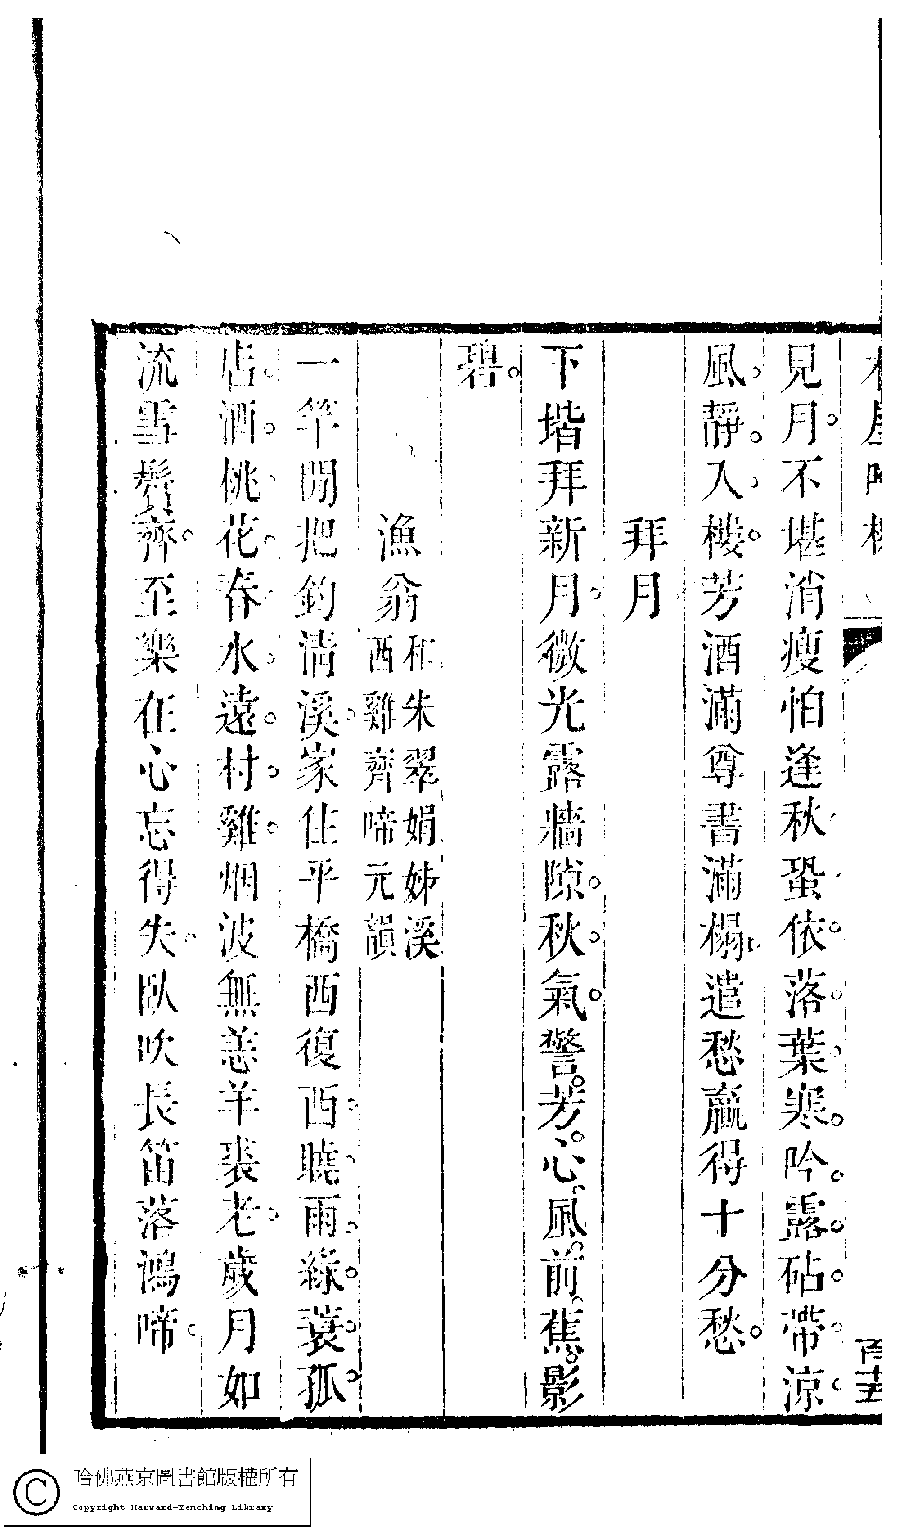 見月不堪消瘦怕逢秋蛩依落葉寒吟露砧帶涼
風靜入樓芳酒滿尊書滿榻遣愁贏得十分愁
拜月
下堦拜新月微光露牆隙秋氣警芳心風前蕉影
碧
漁翁
和朱翠娟姊溪
西雞齊啼元韻
一竿閒把釣清溪家住平橋西復西曉雨綠蓑孤
店酒桃花春水遠村雞烟波無恙羊裘老歲月如
流雪鬢齊至樂在心忘得失臥吹長笛落鴻啼
哈佛燕京圖書館版權所有
Copyright Harvard-Yenching Library